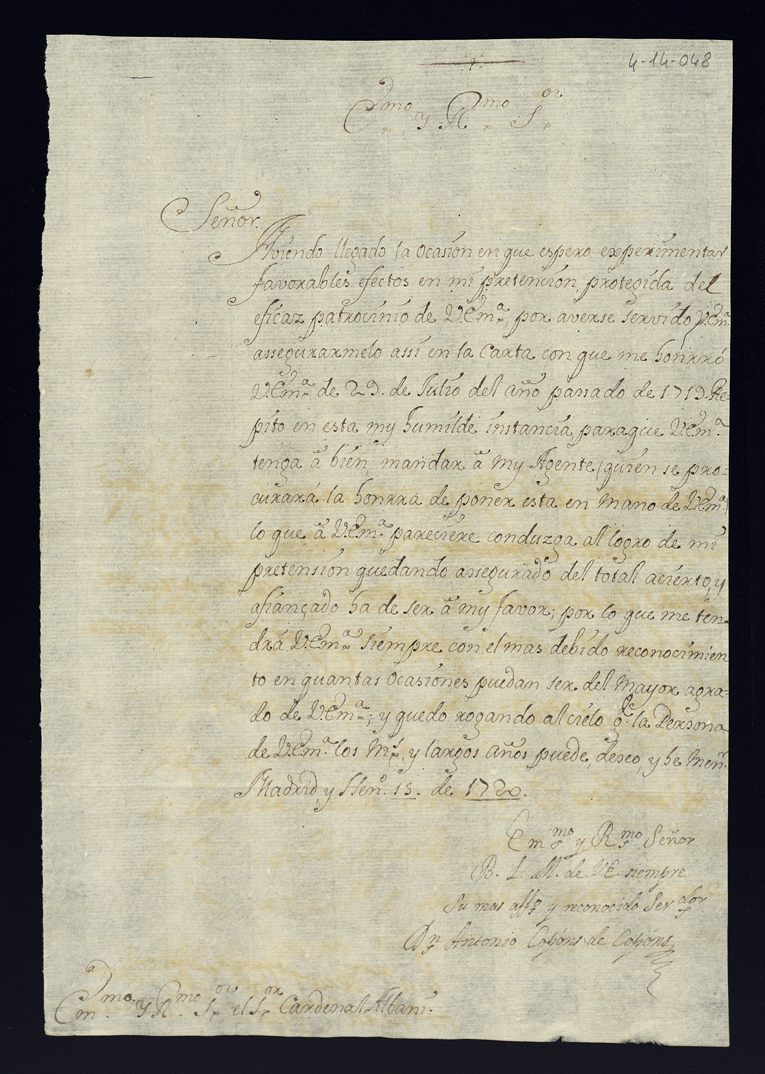 4-14-048
Em.mo y R.mo S.or
Señor.
Aviendo llegado la ocasion en que espero experimentar
favorables efectos en mi pretencion protegida del
eficaz patrocinio de V.Em.ª, por averse servido V.Em.ª
assegurarmelo assi en la Carta con que me honrró
V.Em.ª de 29. de Julio del año passado de 1719. Re-
pito en esta my humilde instancia paraque V.Em.ª
tenga á bien mandar á my Agente (quien se pro-
curará la honrrá de poner esta en mano de V.Em.ª)
lo que á V.Em.ª pareciere conduzga al logro de mi
pretension quedando assegurado del totall acierto, y
afiançado ha de ser á my favor; por lo que me ten-
drá V.Em.ª siempre con el mas debido reconocimien
to en quantas ocasiones puedan ser del Mayor agra-
do de V.Em.ª; y quedo rogando al cielo g.de la Persona
de V.Em.ª los M.s, y largos años puede, deseo, y he men.r
Madrid, y Hen.º 15. de 1720.
Em.mo y R.mo Señor
B. L. M. de VE siempre
su mas aff.to y reconocido Ser.dor
D.r Antonio de
Em.mo y R.mo S.or el S.or Cardenal Albani.